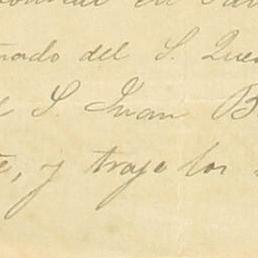 en
nado del S. Que
S. Juan B
te, y traje los